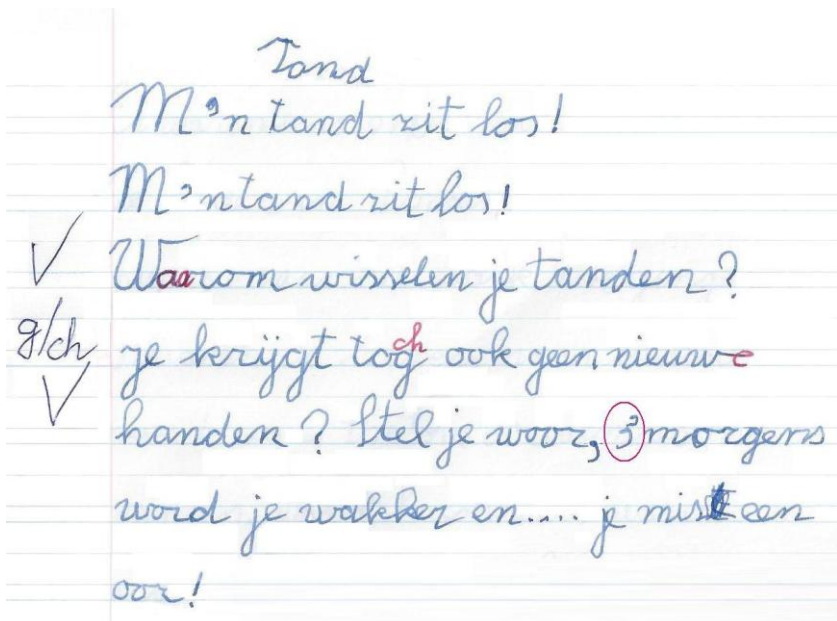 Tand
M'n tand zit los!
M'n tand zit los!
√ Waarom wisselen je tanden?
g/ch je krijgt tog ch ook geen nieuwe
√ handen? Stel je woor, 's morgens
word je wakker en.... je mist een
oor!